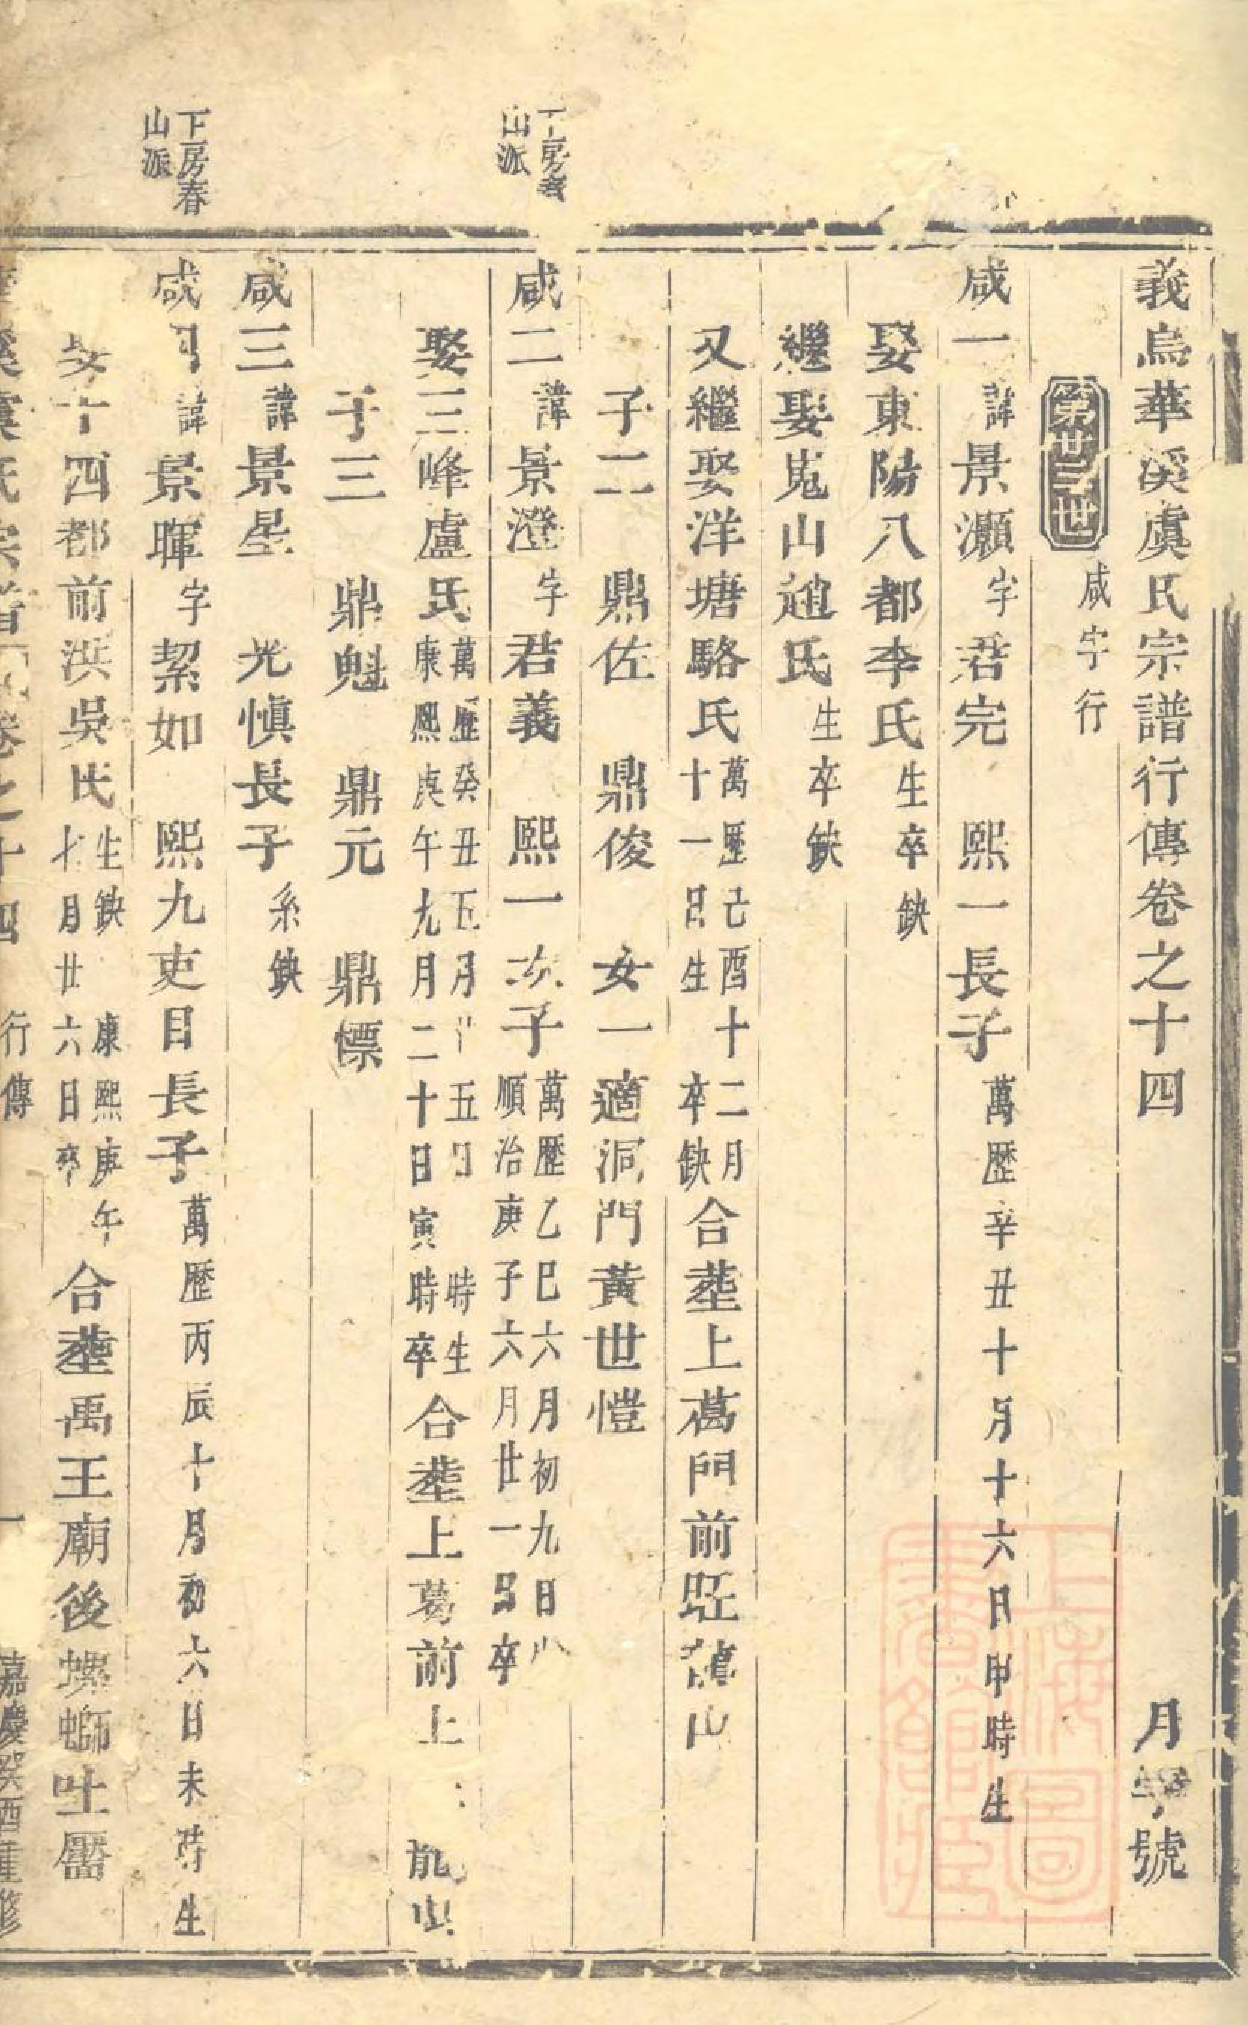 義烏華溪虞氏宗譜行傳卷之十四 月字號
第廿三世 咸字行
咸一 諱景灝 字君完 熙一長子 萬歷辛丑十月十六日申時生
娶東陽八都李氏 生卒缺
繼娶嵬山趙氏 生卒缺
又繼娶洋塘駱氏 萬歷己酉十二月十一日生 卒缺 合塟上葛門前 山
子二 鼎佐 鼎俊 女一適洞門黃世愷
下房春山派
咸二 諱景澄 字君義 熙一次子 萬歷乙巳六月初九日 順治庚子六月廿一日卒
娶三峰盧氏 萬歷癸丑五月 五日 時生 康熙庚午九月二十日寅時卒 合塟上葛前上 龍山
子三 鼎魁 鼎元 鼎慓
咸三 諱景星 光愼長子 系缺
下房春山派
咸四 諱景暉 字絜如 熙九吏目長子 萬歷丙辰十月初六日未時生
娶十四都前洪吳氏 生缺 康熙庚午七月廿六日卒 合塟禹王廟後螺螄吐靨
華溪虞氏宗譜 卷之十四 行傳 一 嘉慶癸酉重修
上海圖書館藏